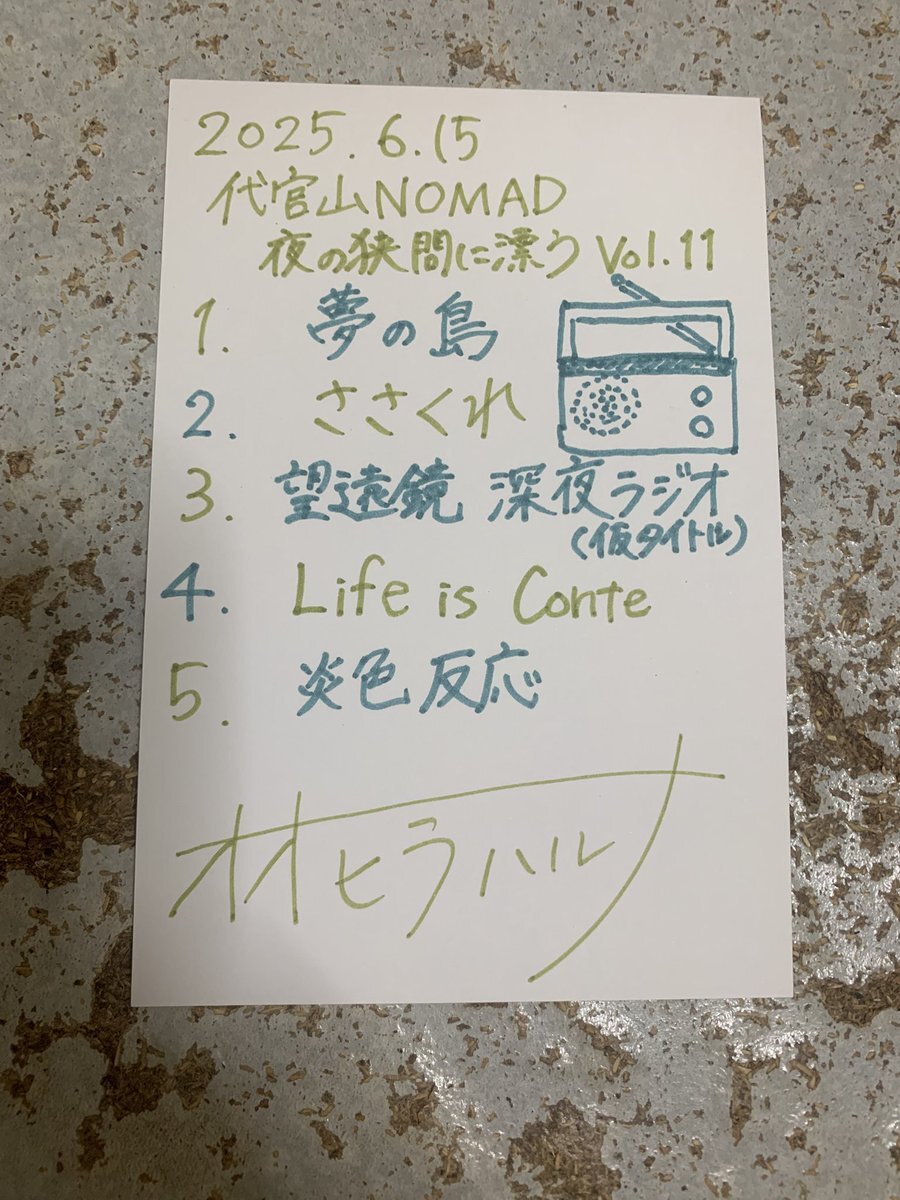 2025.6.15
代官山NOMAD
夜の狭間に漂う Vol.11
1. 夢の島
2. ささくれ
3. 望遠鏡 深夜ラジオ
(仮タイトル)
4. Life is Conte
5. 炎色反応
オオヒラハルナ